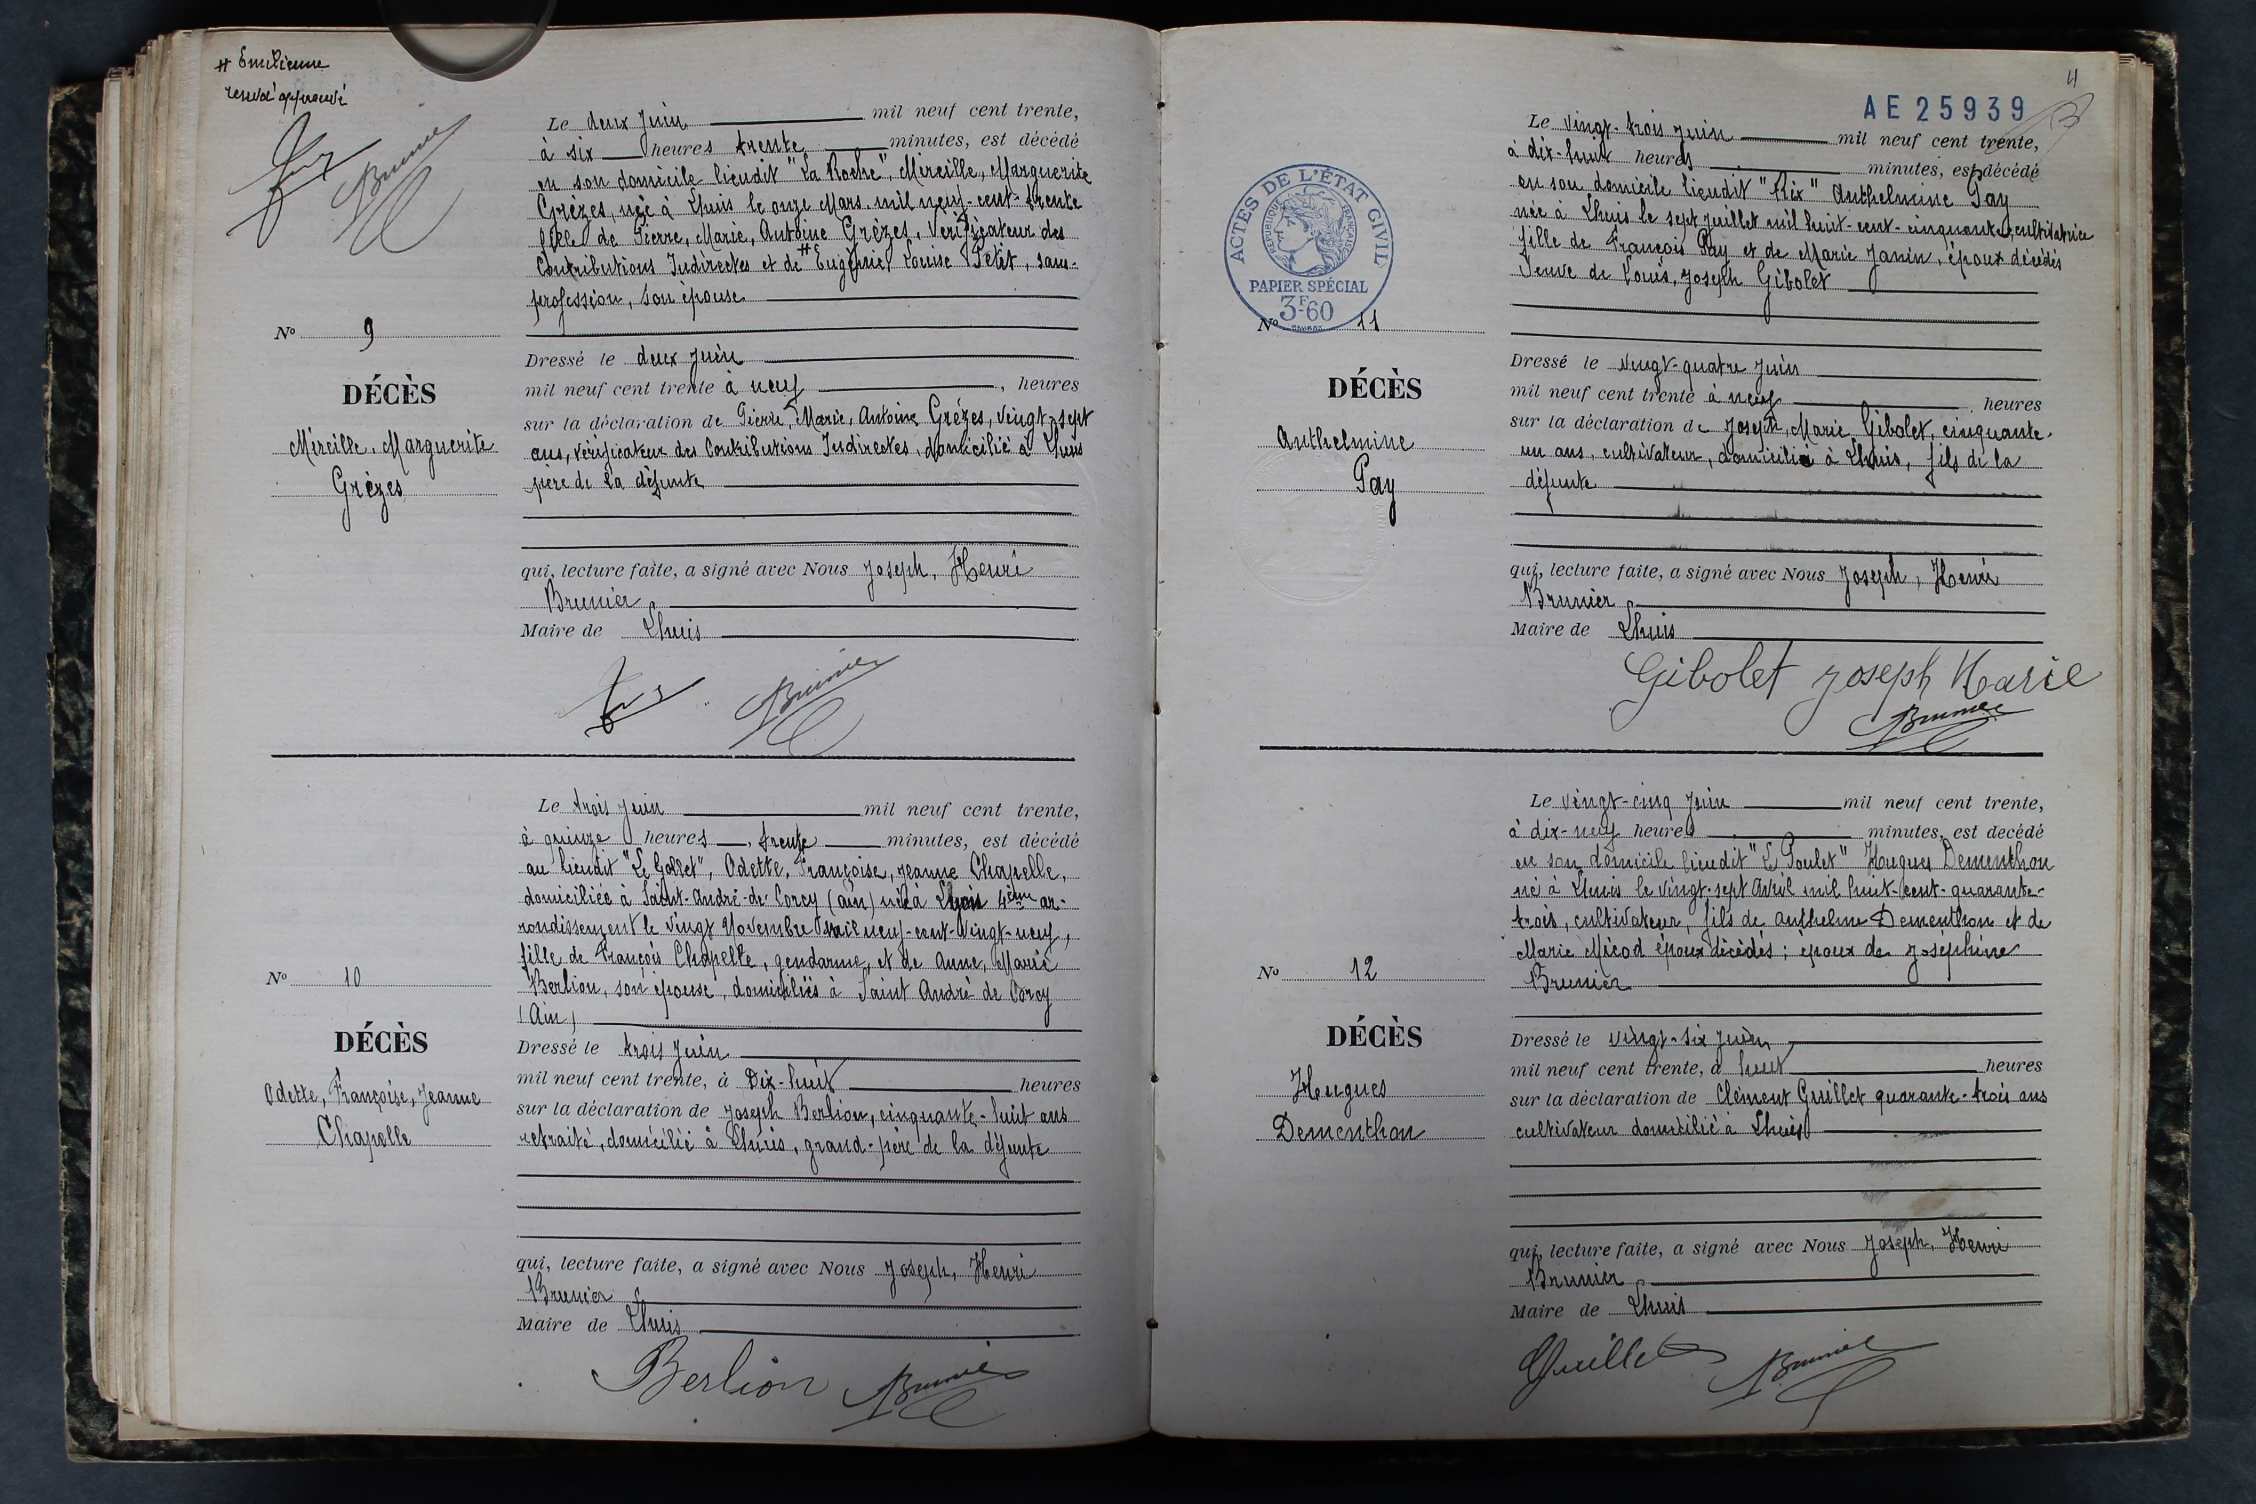 # Emilienne
renvoi approuvé
Brunier
Le deux Juin mil neuf cent trente,
à six heures trente minutes, est décédé
en son domicile lieudit "La Roche", Mireille, Marguerite
Grèzes, née à Lhuis le onze Mars mil neuf-cent-trente
fille de Pierre, Marie, Antoine Grèzes, Vérificateur des
Contributions Indirectes et de # Eugénie, Louise Petit, sans-
profession, son épouse
N° 9
DÉCÈS
Mireille, Marguerite
Grèzes
Dressé le deux Juin
mil neuf cent trente à neuf, heures
sur la déclaration de Pierre, Marie, Antoine Grézes, Vingt-sept
ans, vérificateur des Contributions Indirectes, domicilié à Lhuis
père de la défunte
qui, lecture faite, a signé avec Nous Joseph, Henri
Brunier
Maire de Lhuis
Brunier
Le trois Juin mil neuf cent trente,
à quinze heures, trente minutes, est décédé
au lieudit "Le Gollet", Odette, Françoise, Jeanne Chapelle,
domiciliée à Saint-André-de-Corcy (Ain) née à Lyon 4ème ar-
rondissement le vingt Novembre mil neuf-cent-vingt-neuf,
fille de François Chapelle, gendarme, et de Anne, Marie
Berlion, son épouse, domiciliés à Saint André de Corcy
(Ain)
N° 10
DÉCÈS
Odette, Françoise, Jeanne
Chapelle
Dressé le trois Juin
mil neuf cent trente, à Dix-huit heures
sur la déclaration de Joseph Berlion, cinquante-huit ans
retraité, domicilié à Lhuis, grand-père de la défunte
qui, lecture faite, a signé avec Nous Joseph, Henri
Brunier
Maire de Lhuis
Berlion Brunier
AE 25939
ACTES DE L'ÉTAT CIVIL
RÉPUBLIQUE FRANÇAISE
PAPIER SPÉCIAL
3F60
Le vingt-trois Juin mil neuf cent trente,
à dix-huit heures minutes, est décédé
en son domicile lieudit "Rix" Anthelmine Pay
née à Lhuis le sept juillet mil huit-cent-cinquante, cultivatrice
fille de François Pay et de Marie Janin, époux décédés
Veuve de Louis, Joseph Gibolet
N° 11
DÉCÈS
Anthelmine
Pay
Dressé le vingt-quatre Juin
mil neuf cent trente à neuf heures
sur la déclaration de Joseph, Marie Gibolet, cinquante-
un ans, cultivateur, domicilié à Lhuis, fils de la
défunte
qui, lecture faite, a signé avec Nous Joseph, Henri
Brunier
Maire de Lhuis
Gibolet Joseph Marie
Brunier
Le vingt-cinq Juin mil neuf cent trente,
à dix-neuf heures minutes, est decédé
en son domicile lieudit "Le Poulet" Hugues Dementhon
né à Lhuis le vingt-sept Avril mil huit-cent-quarante-
trois, cultivateur, fils de Anthelme Dementhon et de
Marie Micod époux décédés; époux de Joséphine
Brunier
N° 12
DÉCÈS
Hugues
Dementhon
Dressé le vingt-six Juin
mil neuf cent trente, à huit heures
sur la déclaration de Clément Guillet quarante-trois ans
cultivateur domicilié à Lhuis
qui, lecture faite, a signé avec Nous Joseph, Henri
Brunier
Maire de Lhuis
Guillet Brunier